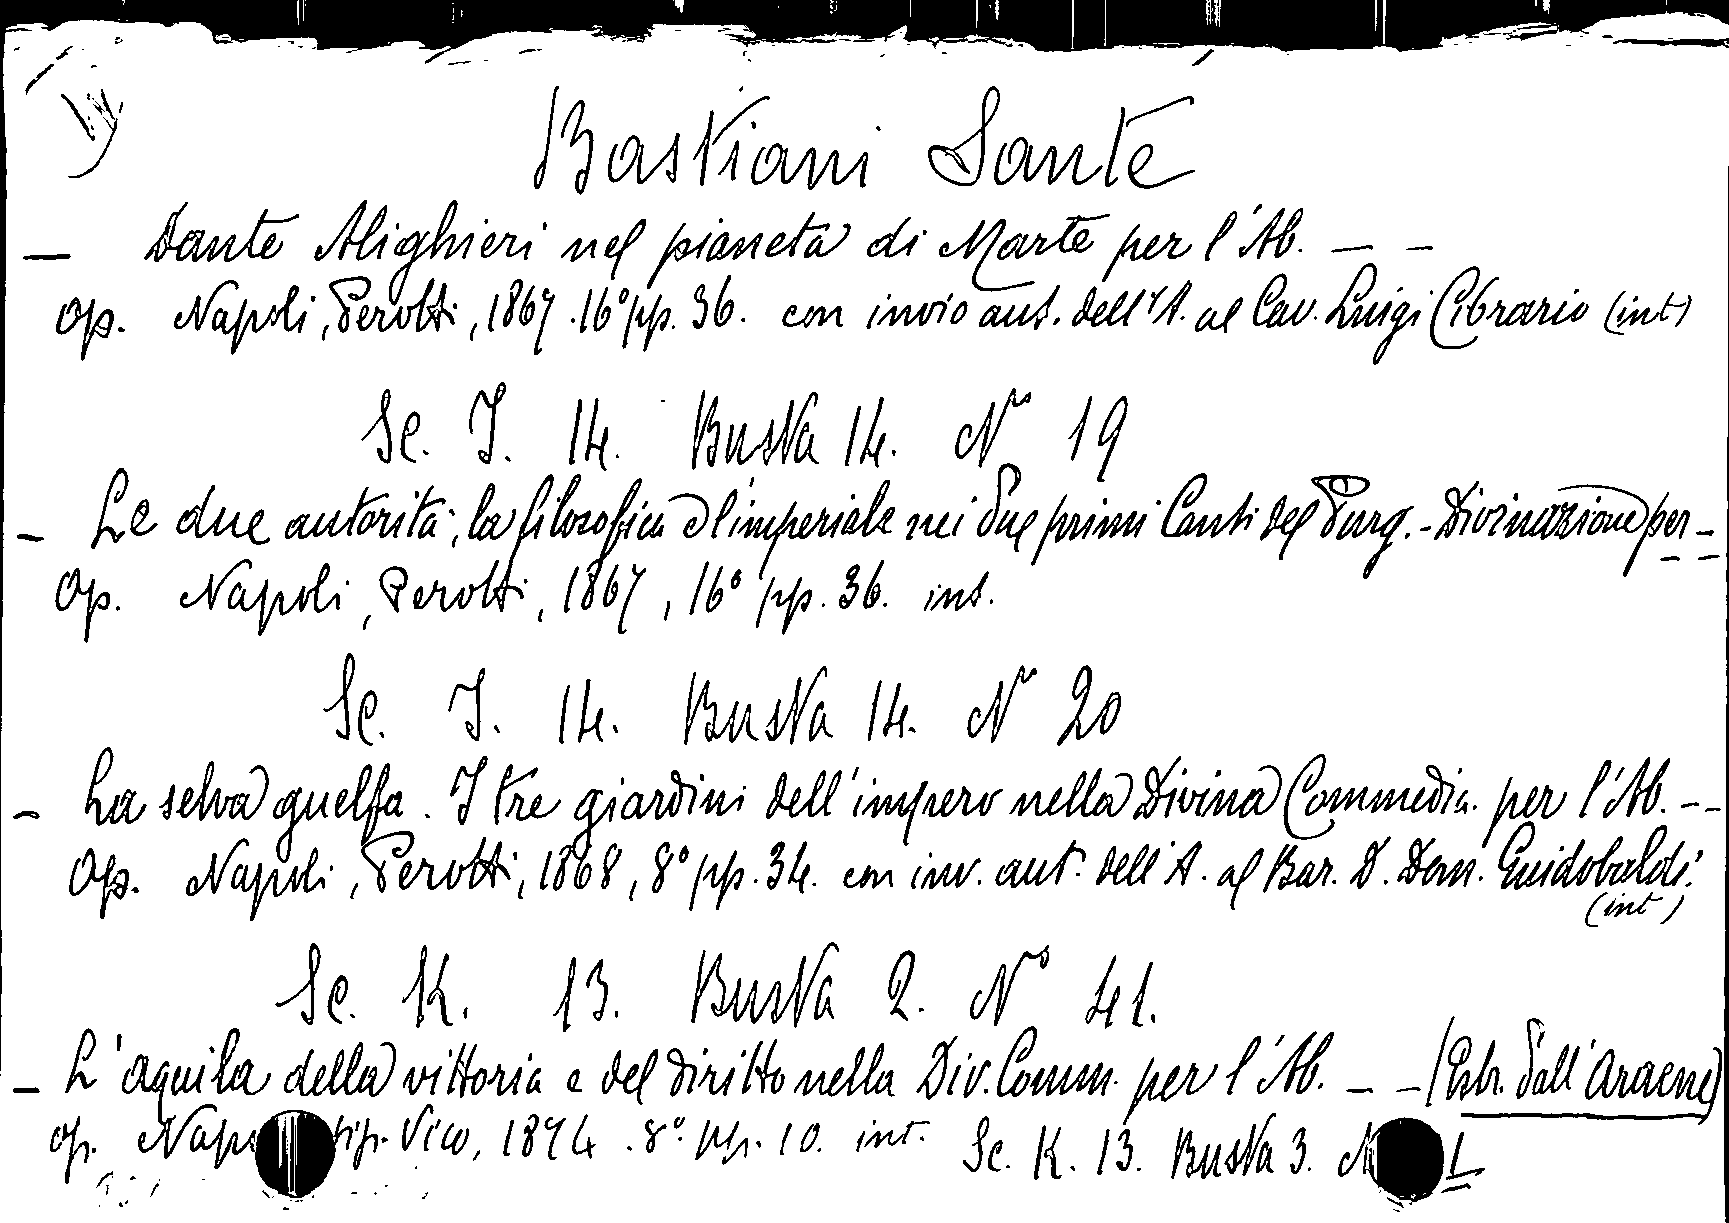 Bastiani Sante
— Dante Alighieri nel pianeta di Marte per l'Ab. — —
Op. Napoli, Perotti, 1867. 16° pp. 36. con invio aut. dell'A. al Cav. Luigi Cibrario (int)
Sc. I. 14. Busta 14. N° 19
— Le due autorità, la filosofica e l'imperiale nei due primi Canti del Purg. - Divinazione per - - -
Op. Napoli, Perotti, 1867, 16° pp. 36. int.
Sc. I. 14. Busta 14. N° 20
— La selva guelfa. I tre giardini dell'impero nella Divina Commedia. per l'Ab. - -
Op. Napoli, Perotti, 1868, 8° pp. 34. con inv. aut. dell'A. al Bar. D. Dom. Guidobaldi.
(int)
Sc. K. 13. Busta 2. N° 41.
— L'aquila della vittoria e del diritto nella Div. Comm. per l'Ab. — — (Estr. dall'Araene)
op. Nap tip. Vico, 1874. 8°. pp. 10. int. Sc. K. 13. Busta 3. N 1